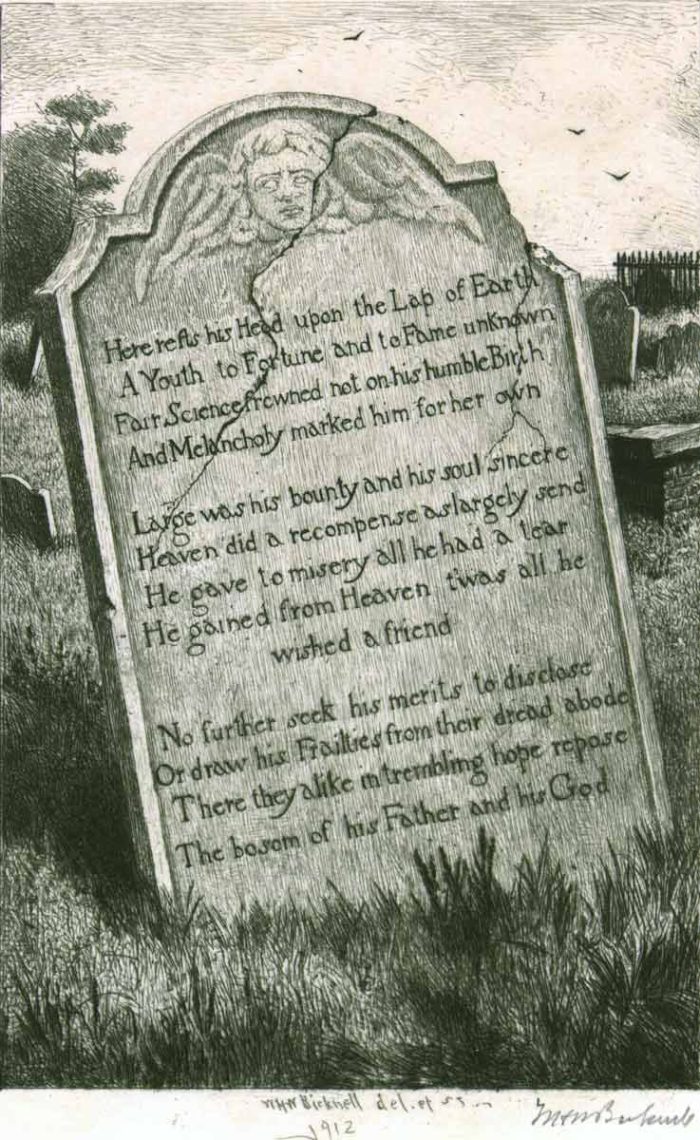 Here rests his Head upon the Lap of Earth
A Youth to Fortune and to Fame unKnown
Fair Science frowned not on his humble Birth
And Melancholy marked him for her own
Large was his bounty and his soul sincere
Heaven did a recompense as largely send
He gave to misery all he had a tear
He gained from Heaven t'was all he
wished a friend
No further seek his merits to disclose
Or draw his Frailties from their dread abode
There they alike in trembling hope repose
The bosom of his Father and his God
WHW Bicknell del. et
1912
WHW Bicknell